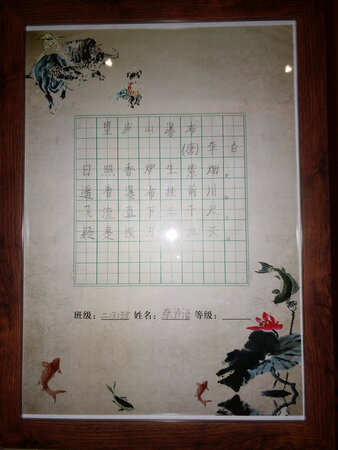 望庐山瀑布
(唐)李白
日照香炉生紫烟，
遥看瀑布挂前川。
飞流直下三千尺，
疑是银河落九天。
班级：二(3)班 姓名：张 等级：